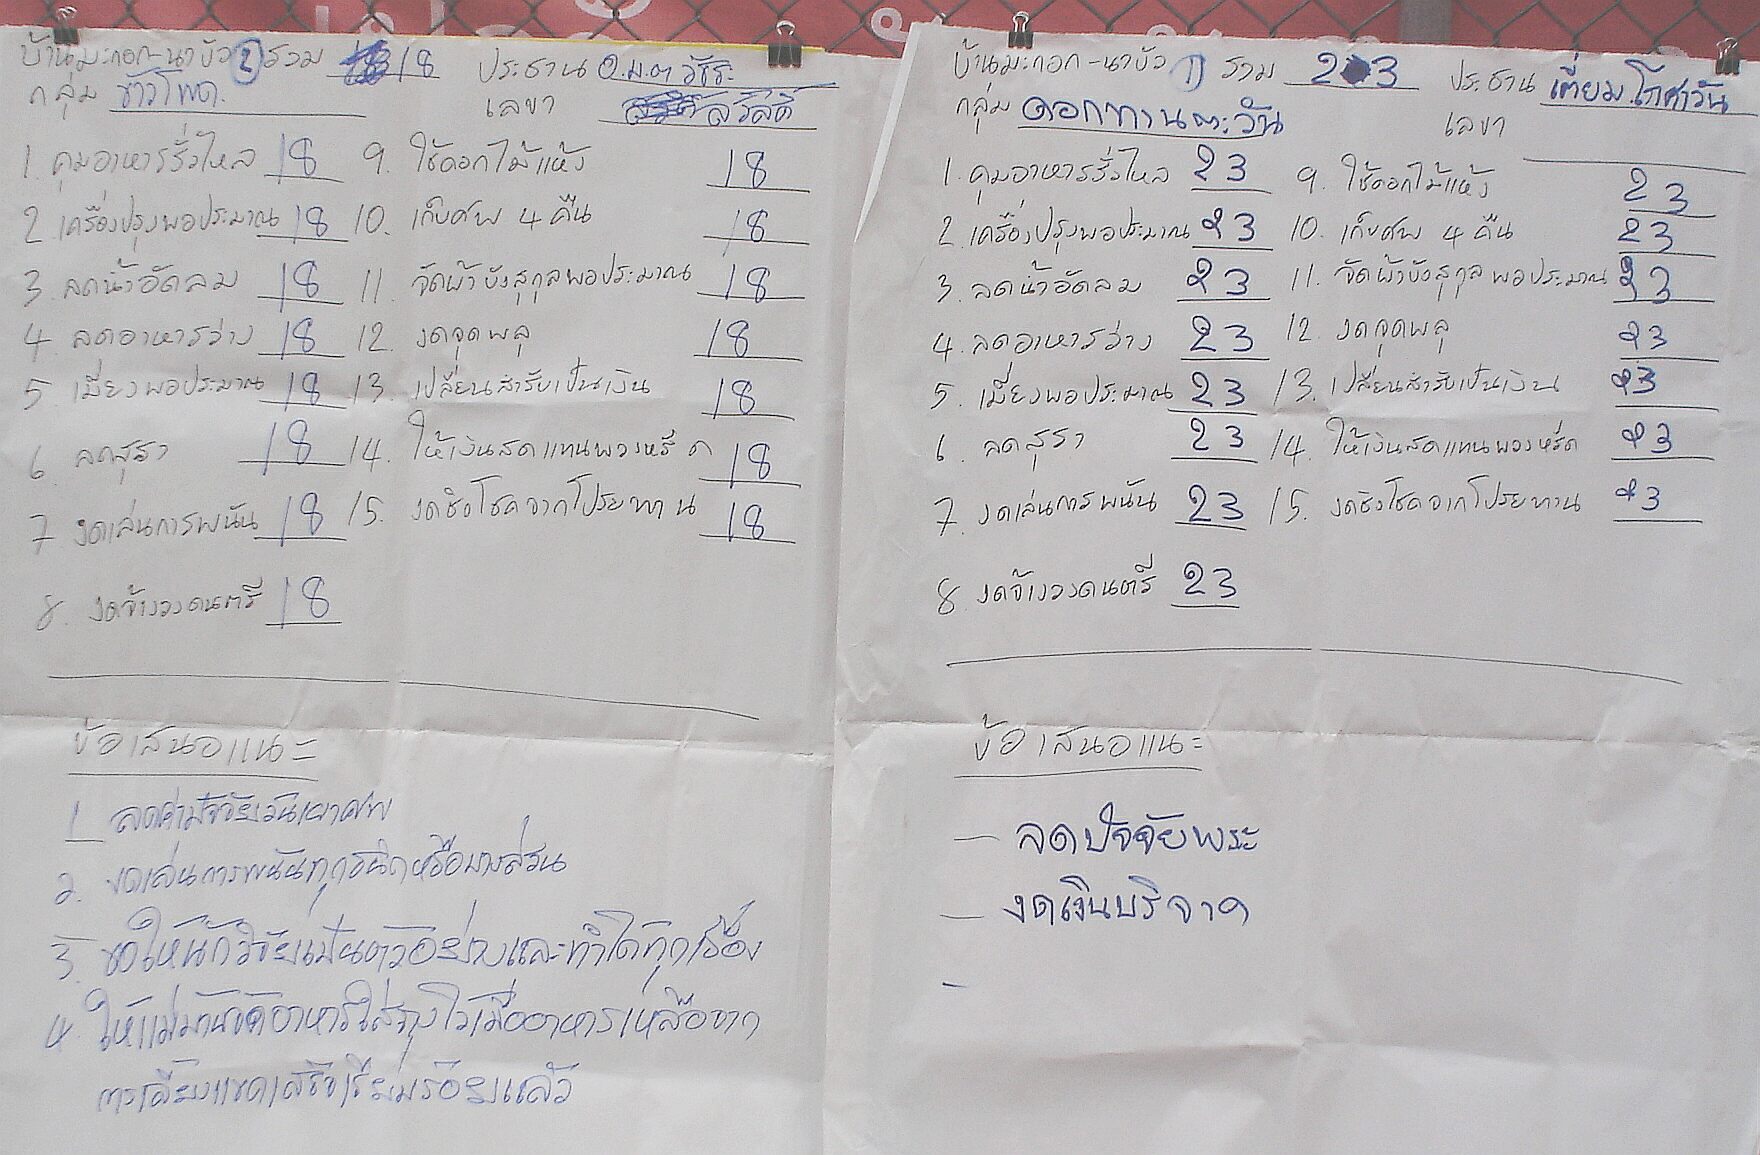 บ้านมะกอก-นาบัว 2 รวม 18 ประธาน อ.ม.ต วัชระ
กลุ่ม ข้าวโพด. เลขา สวัสดิ์
1. คุมอาหารรั่วไหล 18 9. ใช้ดอกไม้แห้ง 18
2 เครื่องปรุงพอประมาณ 18 10. เก็บศพ 4 คืน 18
3. ลดน้ำอัดลม 18 11. จัดผ้าบังสุกุลพอประมาณ 18
4 ลดอาหารว่าง 18 12. งดจุดพลุ 18
5 เมี่ยงพอประมาณ 18 13. เปลี่ยนสำรับเป็นเงิน 18
6 ลดสุรา 18 14. ให้เงินสดแทนพวงหรีด 18
7 งดเล่นการพนัน 18 15. งดชิงโชคจากโปรยทาน 18
8. งดจ้างวงดนตรี 18
ข้อเสนอแนะ
1 ลดค่าปัจจัยวันเผาศพ
2. งดเล่นการพนันทุกชนิดหรือบางส่วน
3 ขอให้นักวิจัยเป็นตัวอย่างและทำได้ทุกเรื่อง
4. ให้แม่บ้านจัดอาหารใส่ถุงไว้เมื่ออาหารเหลือจาก
การเลี้ยงแขกเสร็จเรียบร้อยแล้ว
บ้านมะกอก-นาบัว 1) รวม 23 ประธาน เตี่ยม โกศาวัน
กลุ่ม ดอกทานตะวัน เลขา
1. คุมอาหารรั่วไหล 23 9. ใช้ดอกไม้แห้ง 23
2. เครื่องปรุงพอประมาณ 23 10. เก็บศพ 4 คืน 23
3. ลดน้ำอัดลม 23 11. จัดผ้าบังสุกุลพอประมาณ 23
4. ลดอาหารว่าง 23 12. งดจุดพลุ 23
5. เมี่ยงพอประมาณ 23 13. เปลี่ยนสำรับเป็นเงิน 23
6. ลดสุรา 23 14. ให้เงินสดแทนพวงหรีด 23
7. งดเล่นการพนัน 23 15. งดชิงโชคจากโปรยทาน 23
8. งดจ้างวงดนตรี 23
ข้อเสนอแนะ
- ลดปัจจัยพระ
- งดเงินบริจาค
-